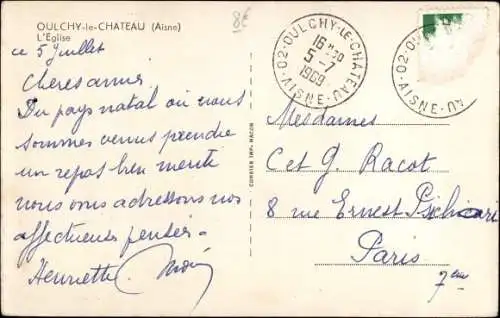 OULCHY-le-CHATEAU (Aisne)
L'Eglise
8€
ce 5 Juillet
Chères amies
Du pays natal où nous
sommes venus prendre
un repos bien mérité
nous vous adressons nos
affectueuses pensées
Henriette
COMBIER IMP. MACON
02-OULCHY-LE-CHATEAU
16 H 30
5-7
1969
AISNE
02-OU
AU
AISNE
Mesdames
C et G. Racot
8 rue Ernest Psichari
Paris
7ème